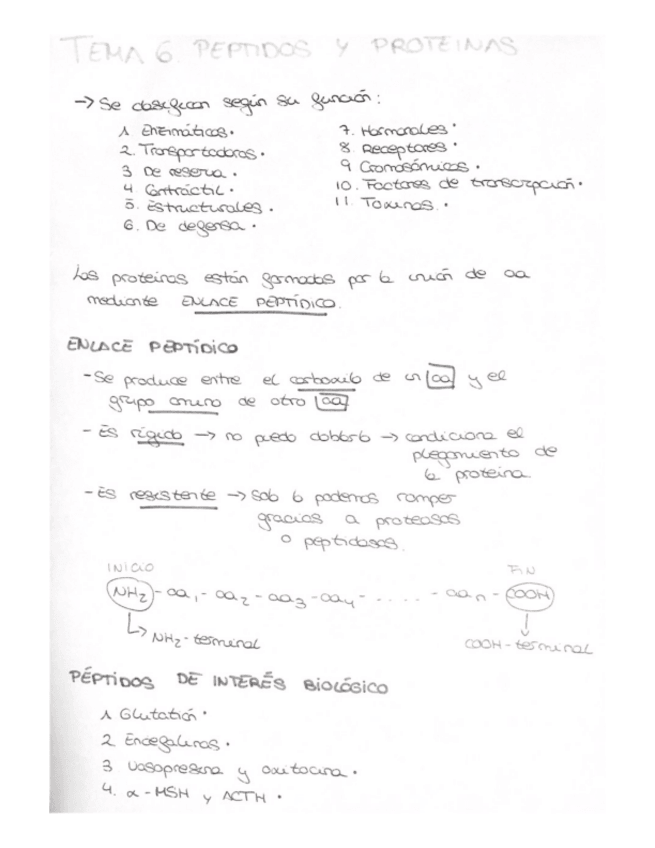 TEMA 6. PEPTIDOS Y PROTEINAS
→ Se clasifican según su función:
1 Enzimáticas.
2. Transportadoras.
3 De reserva.
4. Contráctil.
5. Estructurales.
6. De defensa.
7. Hormonales.
8. Receptores.
9 Cromosómicas.
10. Factores de transcripción.
11. Toxinas.
Las proteinas están formadas por la unión de aa
mediante ENLACE PEPTÍDICO.
ENLACE PEPTÍDICO
- Se produce entre el carboxilo de un aa y el
grupo amino de otro aa
- Es rígido → no puedo doblarlo → condiciona el
plegamiento de
la proteina.
- Es resistente → Solo lo podemos romper
gracias a proteasas
o peptidasas.
INICIO
FIN
NH₂ - aa₁ - aa₂ - aa₃ - aa₄ - . . . . - aan - COOH
NH₂-terminal
COOH-terminal
PÉPTIDOS DE INTERÉS BIOLÓGICO
1 Glutatión.
2 Encefalinas.
3 Vasopresina y oxitocina.
4. α-MSH y ACTH.